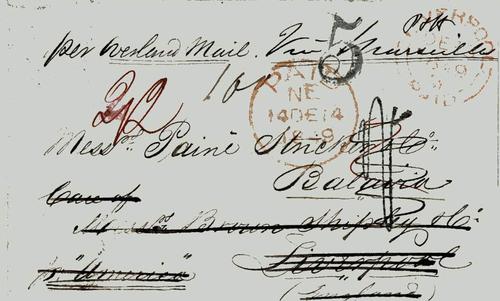 per Overland Mail. Via Marseille
5
2/2
PAID
NE
14 DE 14
Messrs. Paine Stricker & Co.
Batavia
Care of
Messrs Brown Shipley & Co.
Liverpool
pr "America"
(England)